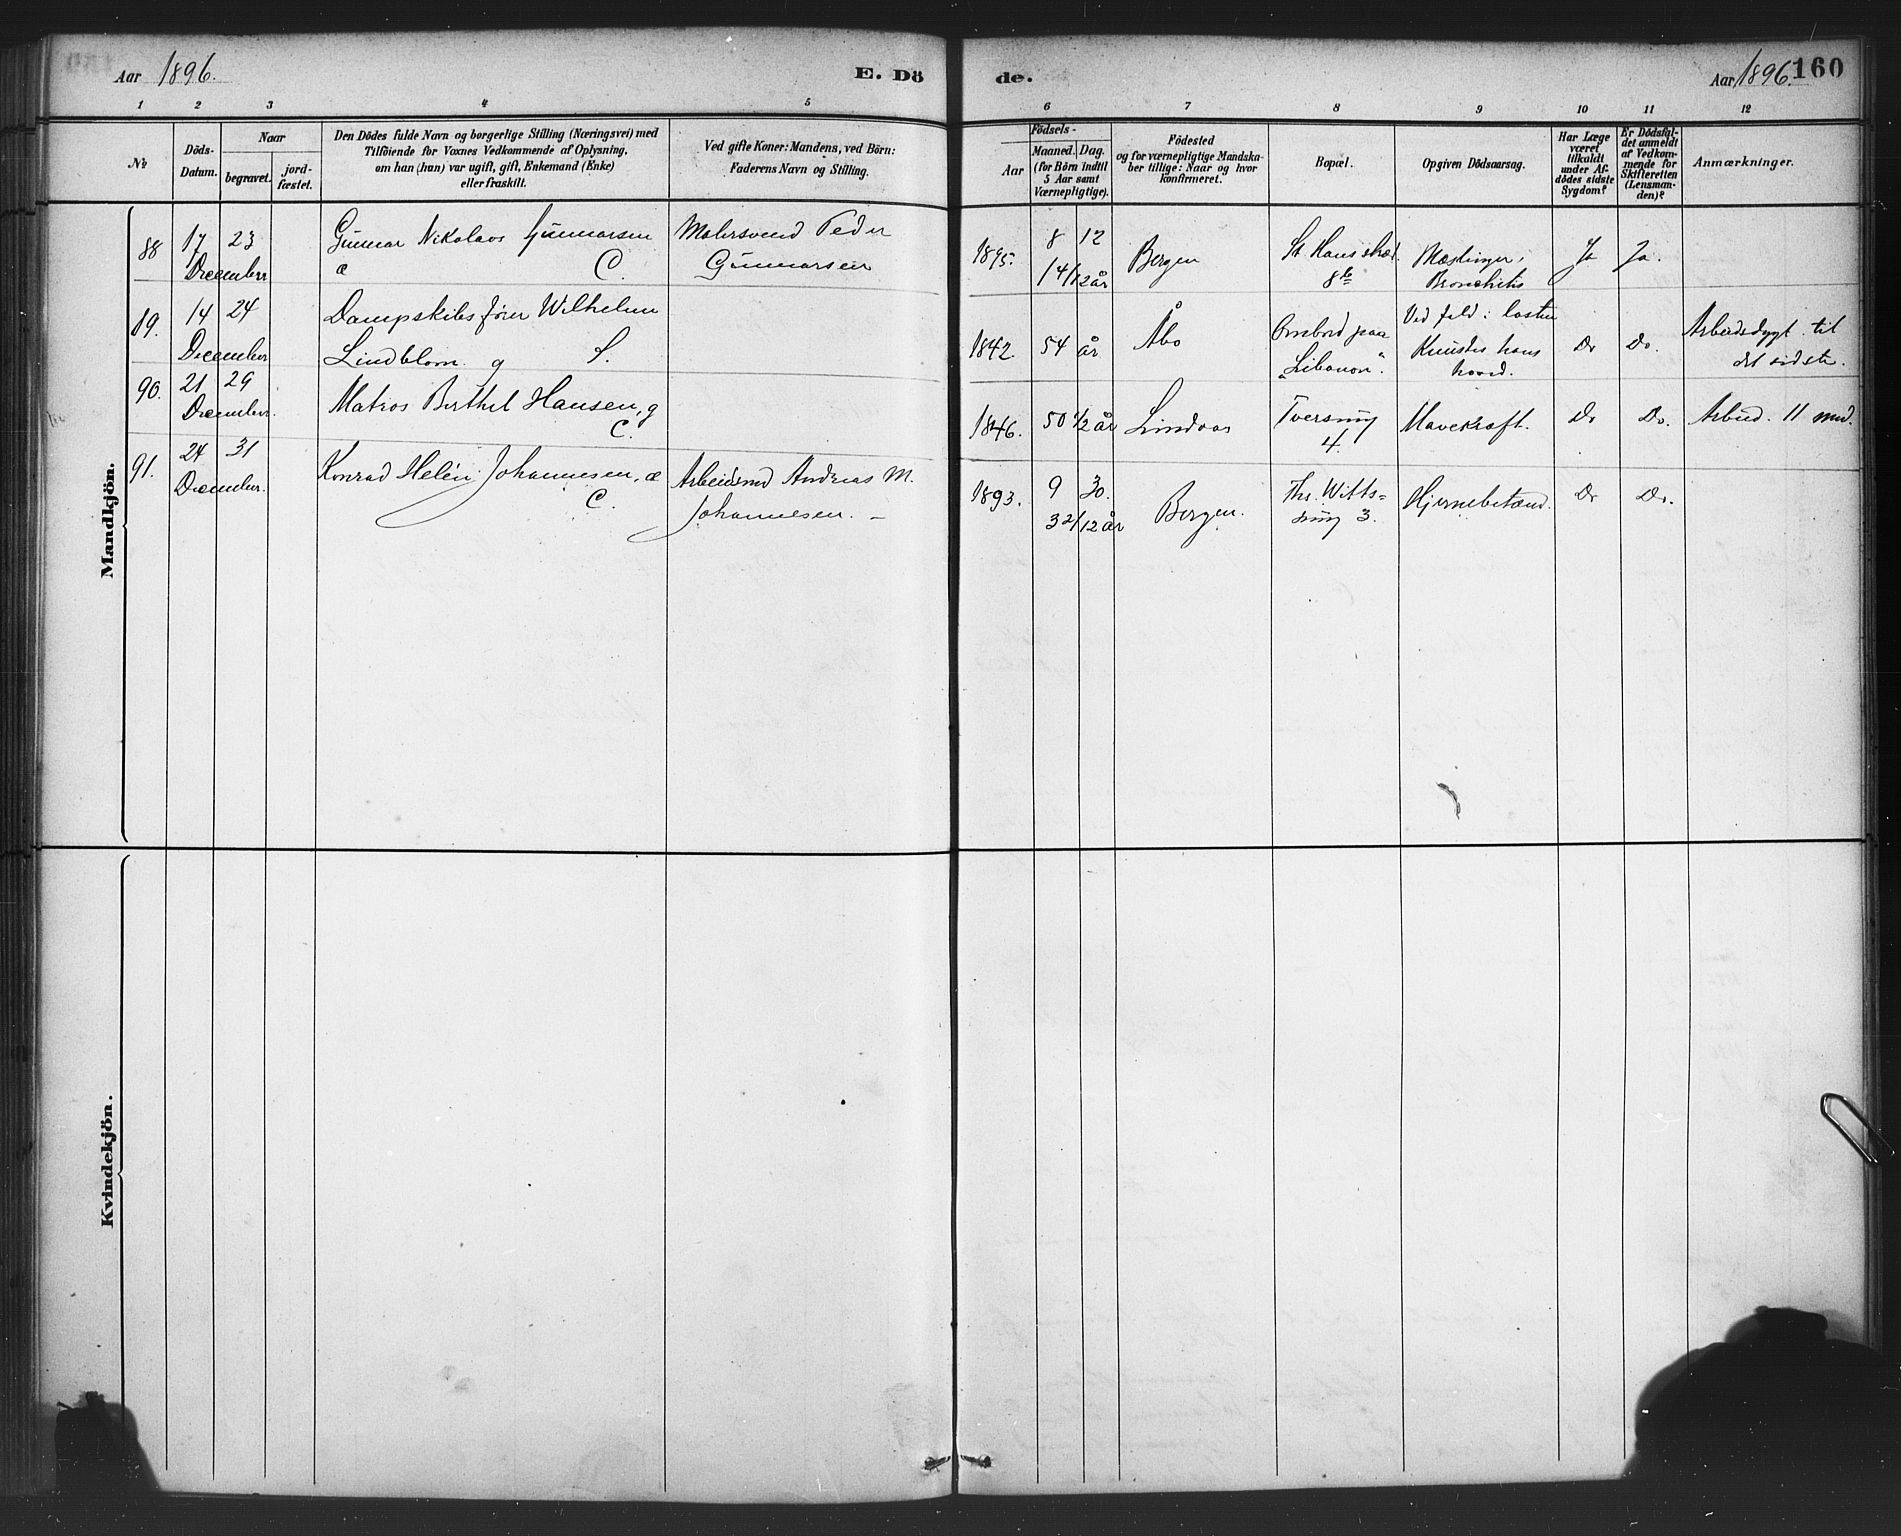 Aar 1896.
E. Dö
de.
Aar 1896.
160
1 2 3 4 5 6 7 8 9 10 11 12
No.
Döds-
Datum.
Naar
begravet.
jord-
fæstet.
Den Dödes fulde Navn og borgerlige Stilling (Næringsvei) med
Tilföiende for Voxnes Vedkommende af Oplysning,
om han (hun) var ugift, gift, Enkemand (Enke)
eller fraskilt.
Ved gifte Koner: Mandens, ved Börn:
Faderens Navn og Stilling.
Födsels-
Aar
Maaned. Dag.
(for Börn indtil
5 Aar samt
Værnepligtige).
Födested
og for værnepligtige Mandska-
ber tillige: Naar og hvor
konfirmeret.
Bopæl.
Opgiven Dödsaarsag.
Har Læge
været
tilkaldt
under Af-
dödes sidste
Sygdom?
Er Dödsfal-
det anmeldt
af Vedkom-
mende for
Skifteretten
(Lensman-
den)?
Anmærkninger.
Mandkjön.
88 17 23 Gunnar Nikolaos Gunnarsen Malersvend Peder
December æ C. Gunnarsen
1895. 8 12 Bergen St Hansstræd. Mæslinger, Ja Ja.
14/12 år 8b Bronchitis
89. 14 24 Dampskibsfører Wilhelm
December Lindblom. g S.
1842. 54 år Åbo Ombord paa Ved fald i lasten Do Do. Arbeidsdygt. til
"Libanon". Knustes hans det sidste.
hoved.
90. 21 29 Matros Berthel Hansen, g
December. C.
1846. 50 1/2 år Lindaas Tversmug Mavekræft. Do Do. Arbud. 11 md.
4.
91. 24 31 Konrad Helén Johannesen, æ Arbeidsmd Andreas M.
December. C. Johannesen.
1893. 9 30. Bergen. Thr. Witts- Hjernebetænd. Do Do.
3 2/12 år smug 3.
Kvindekjön.